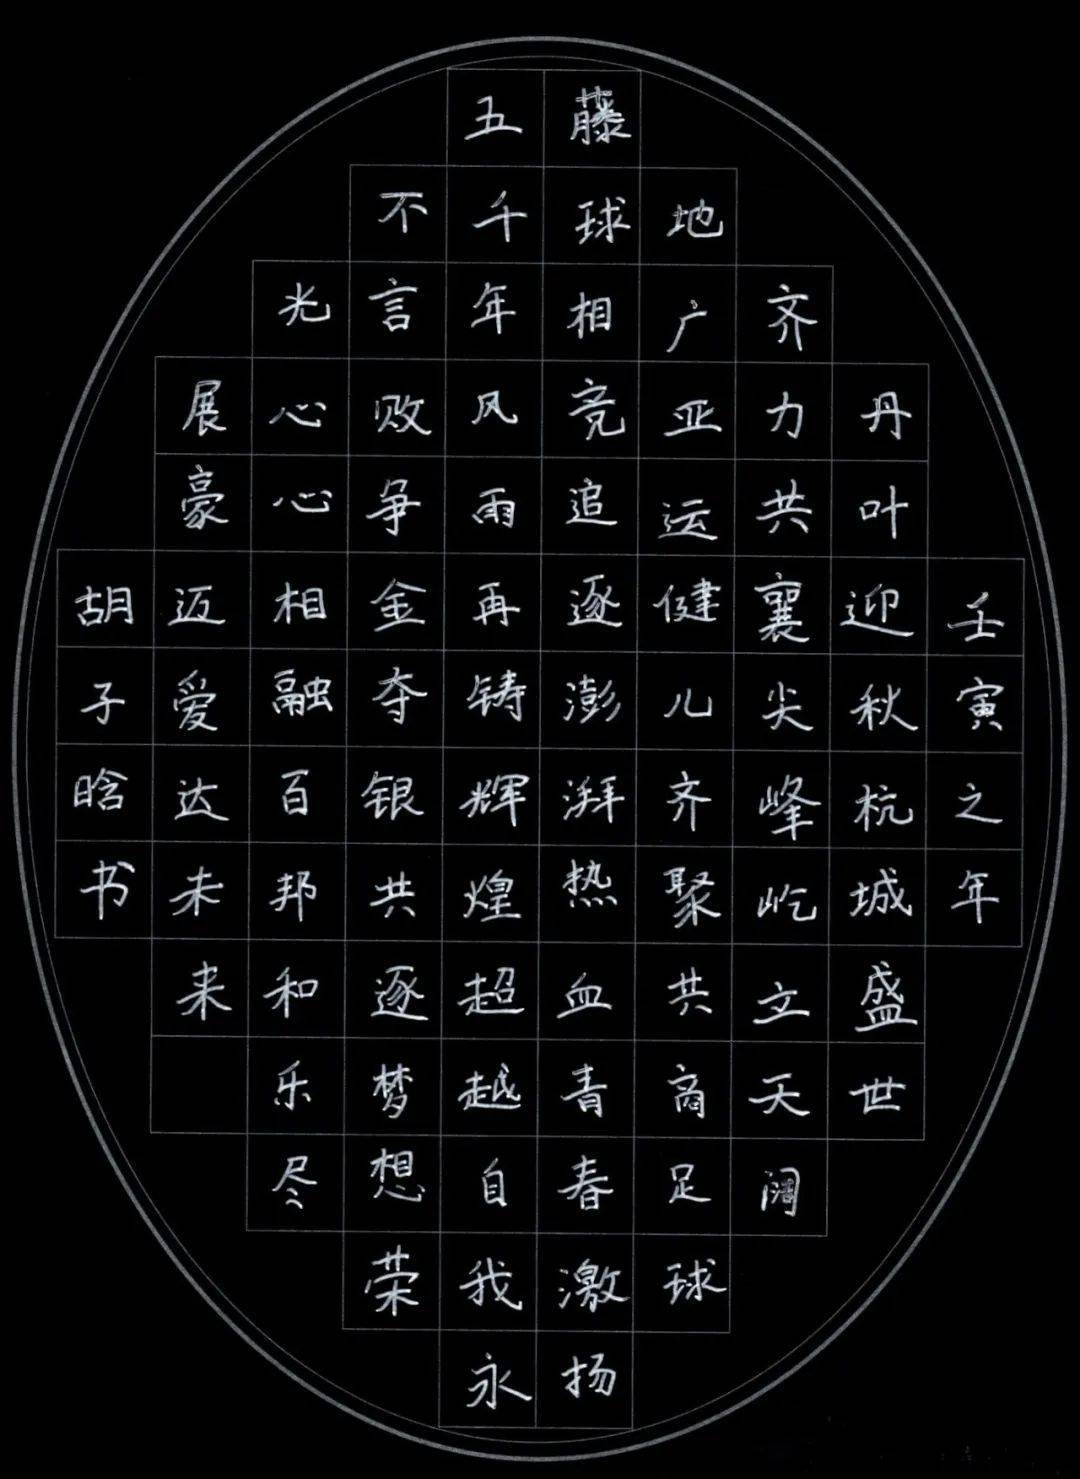 壬寅之年
丹叶迎秋杭城盛世
齐力共襄尖峰屹文天阔
地广亚运健儿齐聚共商足球
藤球相竞追逐澎湃热血青春激扬
五千年风雨再铸辉煌超越自我永
不言败争金夺银共逐梦想荣
光心心相融百邦和乐尽
展豪迈爱达未来
胡子晗书